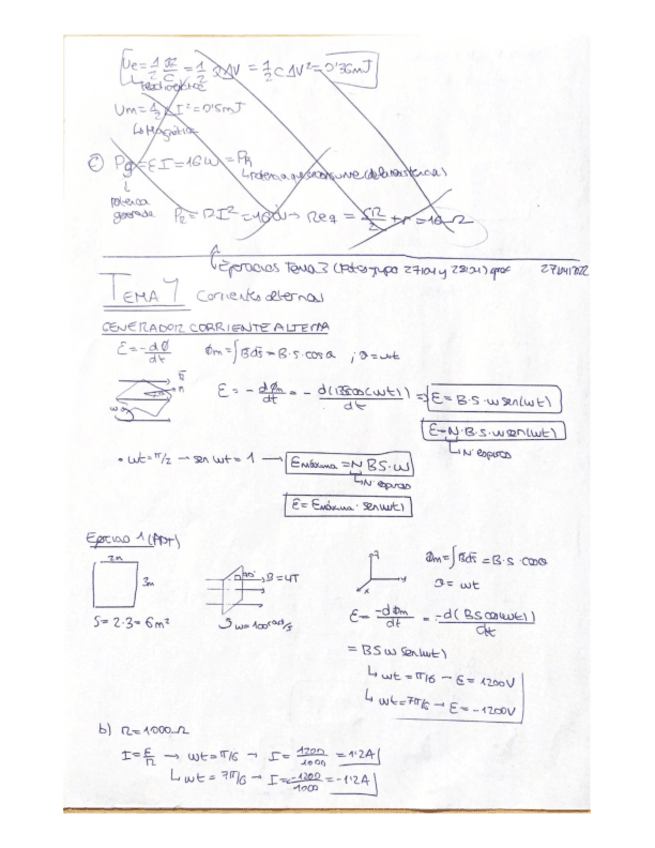 Ue = 1/2 Q²/C = 1/2 QΔV = 1/2 CΔV² = 0'36mJ
Um = 1/2 L I² = 0'5mJ
↳ Magnética
c) Pg = εI = 16W = PR
↳ Potencia que consume (de la resistencia)
↓ potencia generada
PR = RI² = 16W → Req = R/2 + r = 16Ω
Ejercicios Tema 3 (Fotos grupo 27/01 y 28/01) 27/01/2022
TEMA 4 Corriente alterna
GENERADOR CORRIENTE ALTERNA
ε = -dØ/dt Øm = ∫Bds = B·S·cosα ; θ = ωt
ε = -dØm/dt = -d(BScos(ωt))/dt ⇒ ε = B·S·ω sen(ωt)
ε = N·B·S·ω sen(ωt)
↳ Nº espiras
• ωt = π/2 → sen ωt = 1 → εmáxima = N BS·ω
↳ Nº espiras
ε = εmáxima · sen(ωt)
Ejercicio 1 (PDF)
2m
3m
90° B = 4T
ω = 100 rad/s
z
y
x
S = 2·3 = 6m²
Øm = ∫Bds = B·S·cosθ
θ = ωt
ε = -dØm/dt = -d(BScos(ωt))/dt
= BSω sen(ωt)
↳ ωt = π/6 → ε = 1200V
↳ ωt = 7π/6 → ε = -1200V
b) R = 1000Ω
I = ε/R → ωt = π/6 → I = 1200/1000 = 1'2A
↳ ωt = 7π/6 → I = -1200/1000 = -1'2A